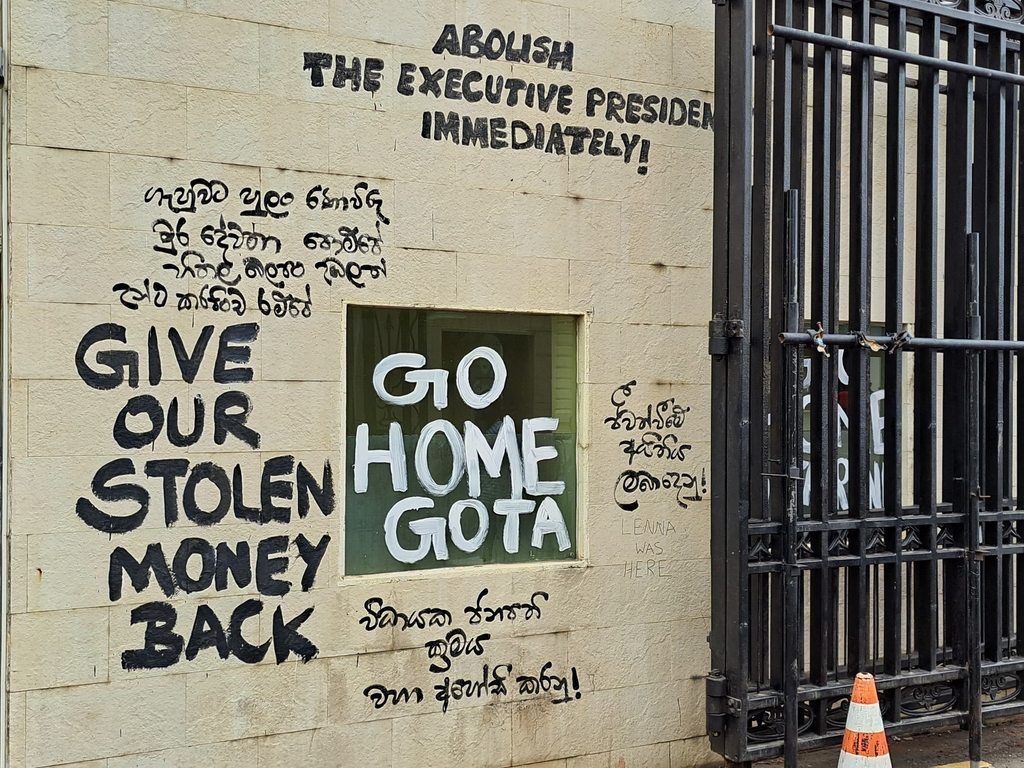 ABOLISH
THE EXECUTIVE PRESIDEN
IMMEDIATELY!
ගැහුවට හුලං නොවිඳ
මුර දේවතා
උන්ට කරන්ට
GIVE
OUR
STOLEN
MONEY
BACK
GO
HOME
GOTA
ජීවත්වීමේ
අයිතිය
ලබාදෙනු!
LENNA
WAS
HERE
විධායක ජනපති
ක්‍රමය
වහා අහෝසි කරනු!